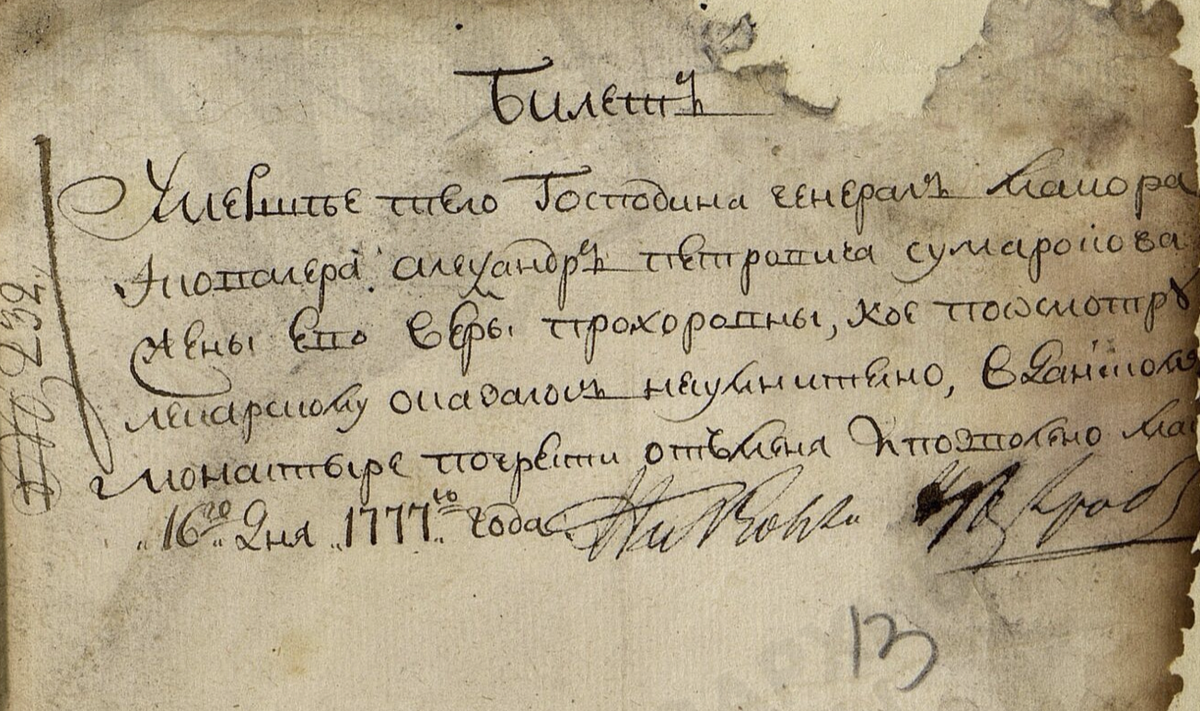 Билетъ
Умершее тело Господина генералъ маиора
икавалера александръ петровича сумарокова
жены ево веры прохоровны, кое поосмотру
лекарскому оказалось неумнително, в Данскомъ
монастыре погрести отъменя Ипозволено маи
"16го" Дня "1777го" года
№ 232
13